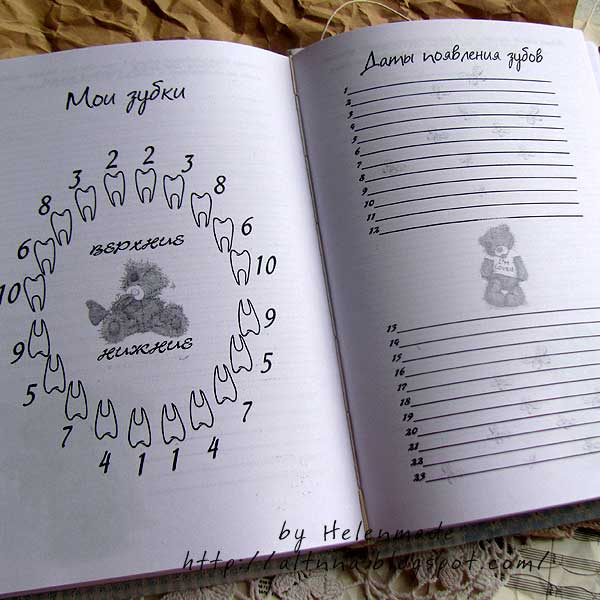 Мои зубки
2 2
3 3
8 8
6 6
верхние
10 10
нижние
9 9
5 5
7 7
4 4
1 1
Даты появления зубов
1
2
3
4
5
6
7
8
9
10
11
12
I'm
Loved
13
14
15
16
17
18
19
20
21
22
23
by Helenmade
http://altnna.blogspot.com/